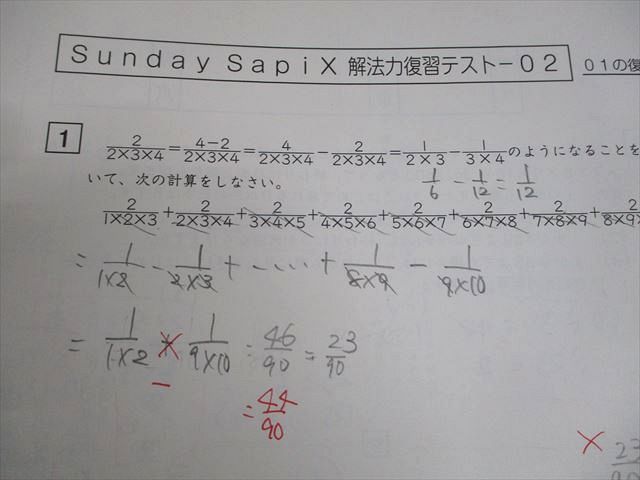 Sunday SapiX 解法力復習テスト-02 01の復
1
2/2×3×4 = 4-2/2×3×4 = 4/2×3×4 - 2/2×3×4 = 1/2×3 - 1/3×4 のようになることを
いて、次の計算をしなさい。 1/6 - 1/12 = 1/12
2/1×2×3 + 2/2×3×4 + 2/3×4×5 + 2/4×5×6 + 2/5×6×7 + 2/6×7×8 + 2/7×8×9 + 2/8×9
= 1/1×2 - 1/2×3 + ..... + 1/8×9 - 1/9×10
= 1/1×2 × 1/9×10 = 46/90 = 23/90
-
= 44/90
× 23/90